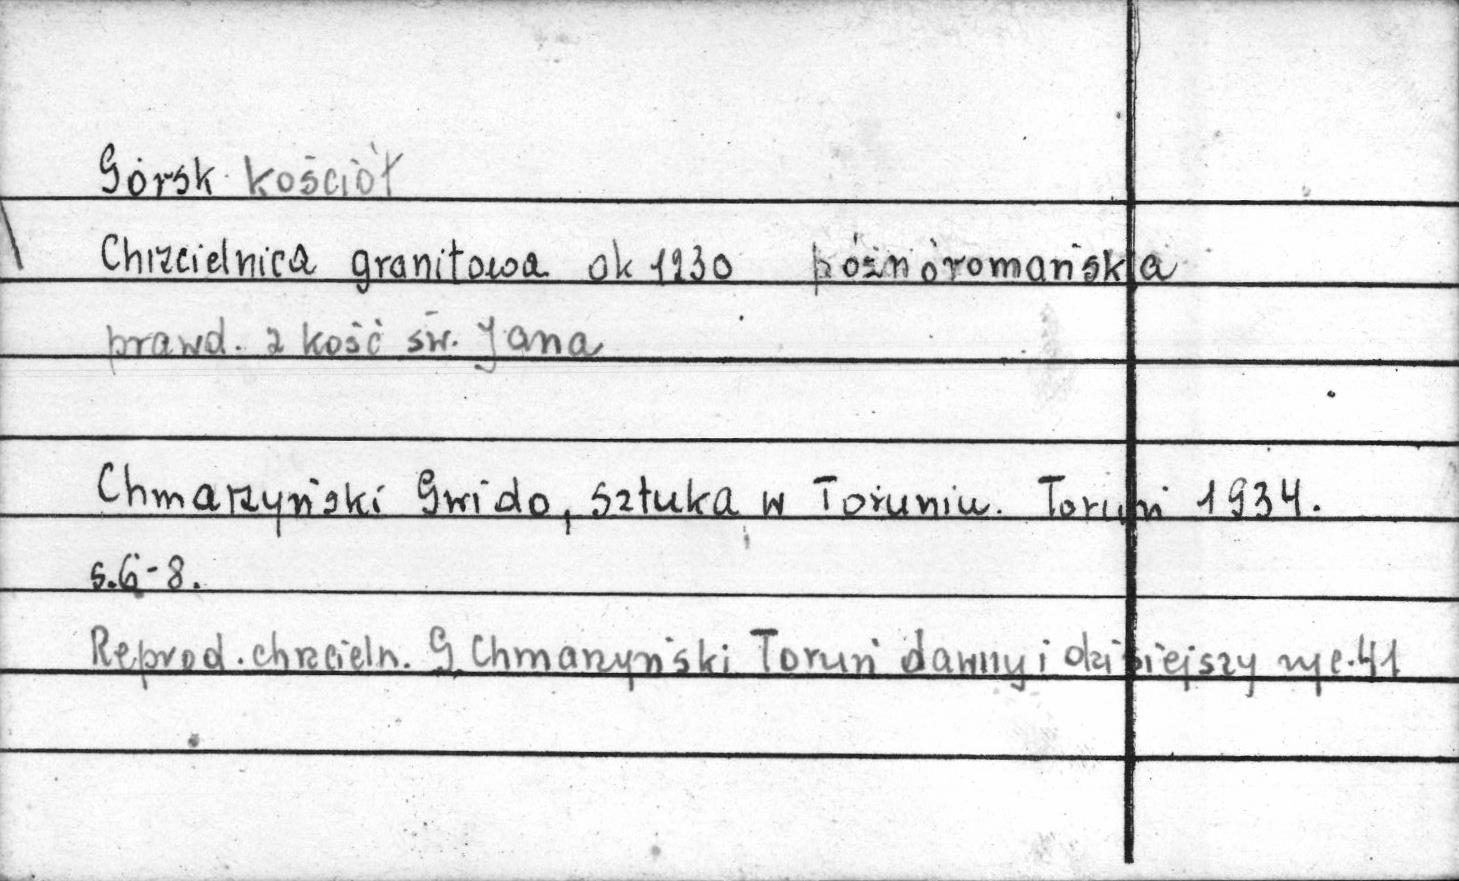 Górsk kościół
Chrzcielnica granitowa ok 1230 późnoromańska
prawd. z kość św. Jana
Chmarzyński Gwido, Sztuka w Toruniu. Toruń 1934.
s.6-8.
Reprod. chrzcieln. G. Chmarzyński Toruń dawny i dzisiejszy ryc. 41